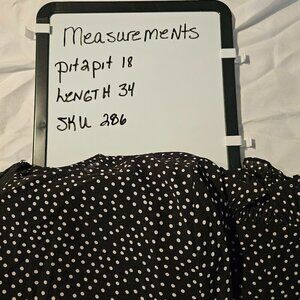 Measurements
pit2pit 18
LENGTH 34
SKU 286